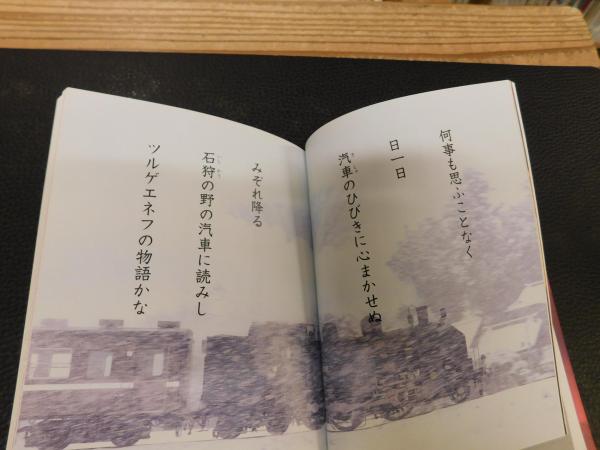 何事も思ふことなく
日一日
汽車のひびきに心まかせぬ
みぞれ降る
石狩の野の汽車に読みし
ツルゲエネフの物語かな